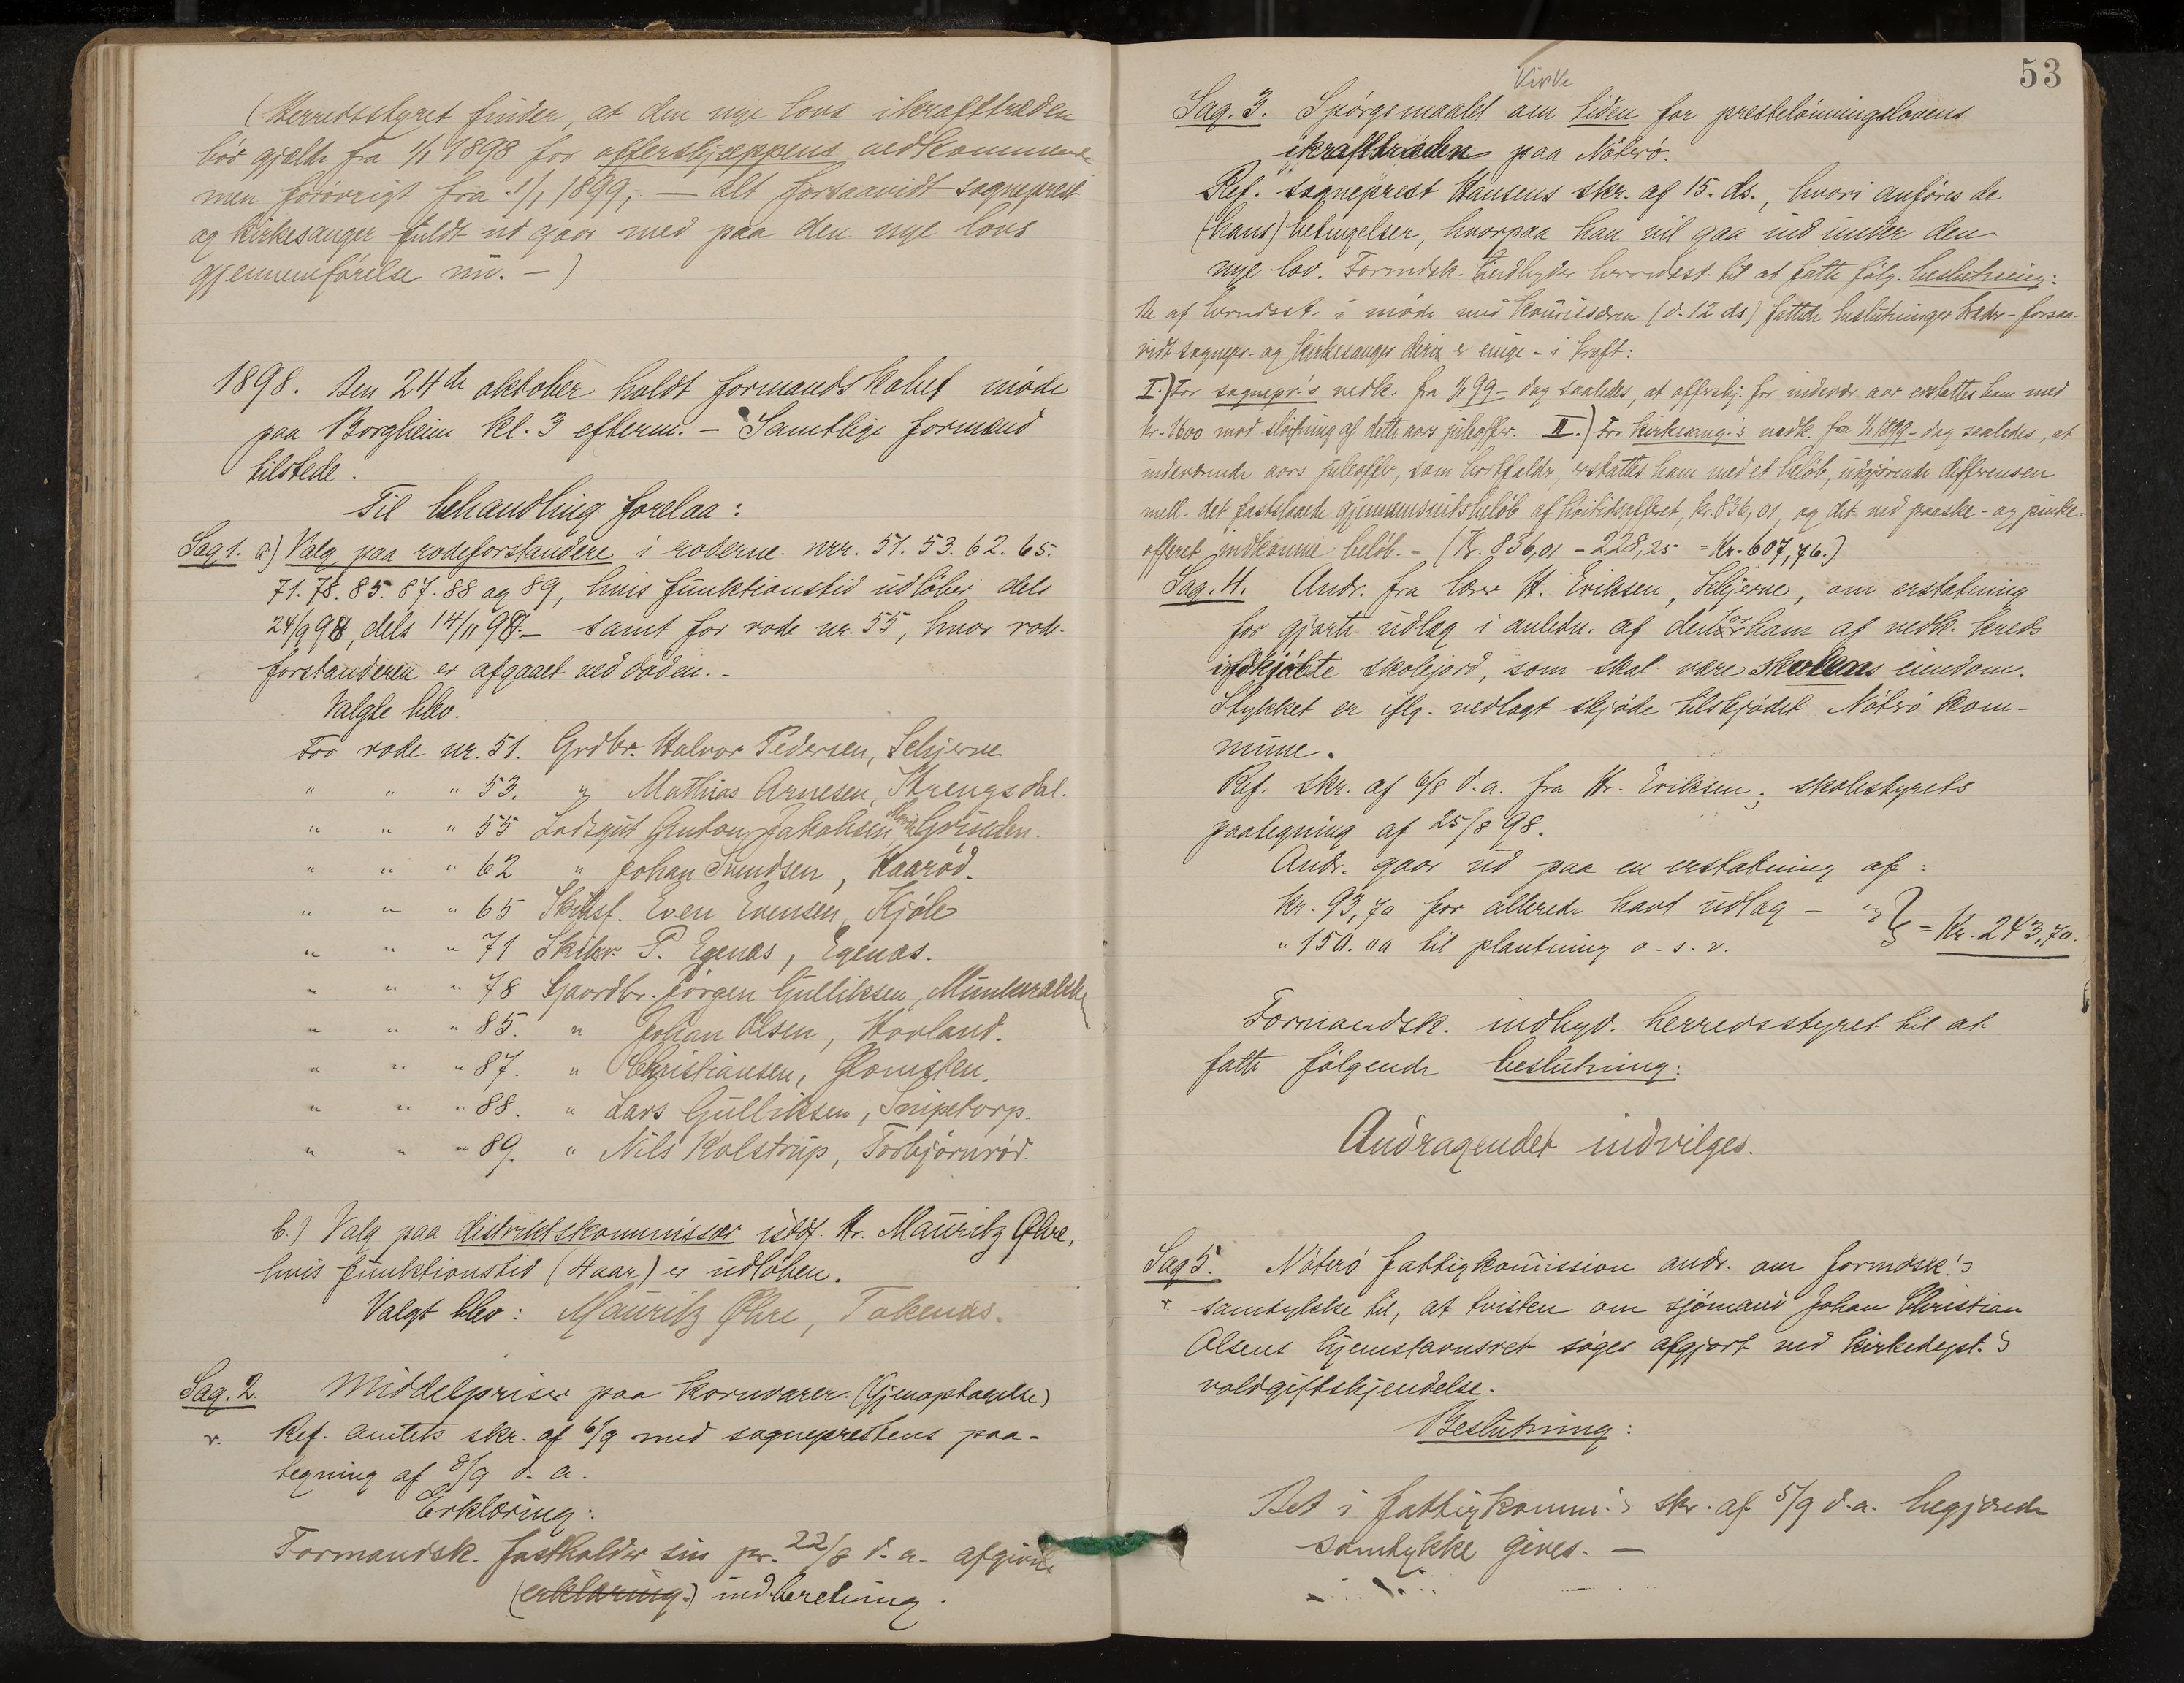 (Herredsstyret finder, at den nye lovs ikrafttræden
bör gjælde fra 1/1 1898 for offerskjæppens vedkommende
men forövrigt fra 1/1 1899, — alt forsaavidt sogneprest
og kirkesanger fuldt ud gaar med paa den nye lovs
gjennemförelse nu. –)
1898. Den 24de oktober holdt formandskabet möde
paa Borgheim kl. 3 efterm. – Samtlige formænd
tilstede.
Til behandling forelaa:
Sag 1. a) Valg paa rodeforstandere i roderne nrr. 51. 53. 62. 65.
71. 78. 85. 87. 88 og 89, hvis funktionstid udlöber dels
24/9 98, dels 14/11 98. – samt for rode nr. 55, hvor rode-
forstanderen er afgaaet ved döden. –
Valgte blev.
For rode nr. 51. Grdbr. Halvor Pedersen, Schjerve
" " " 53. " Mathias Arnesen, Strengsdal.
" " " 55 Lodsgut Anton Jakobsen, Grunden.
" " " 62 " Johan Svendsen, Kaaröd.
" " " 65 Skibsf. Even Evensen, Kjöle
" " " 71 Skibsr. P. Egenæs, Egenæs.
" " " 78 Gaardbr. Jörgen Gulliksen, Munkerækken
" " " 85. " Johan Olsen, Hovland.
" " " 87. " Christiansen, Glomsten.
" " " 88. " Lars Gulliksen, Snipetorp.
" " " 89. " Nils Kolstrup, Torbjörnröd.
b.) Valg paa distriktskommissær istdf. Hr. Mauritz Øhre,
hvis funktionstid (4 aar) er udlöben.
Valgt blev: Mauritz Øhre, Tokenæs.
Sag. 2. Middelpriser paa kornvarer. (Gjenoptagelse)
v. Ref. amtets skr. af 6/9 med sogneprestens paa-
tegning af 8/9 d. a.
Erklæring:
Formandsk. fastholder sin pr. 22/8 d. a. afgivne
(erklæring.) indberetning.
53
Virke
Sag. 3. Spörgsmaalet om tiden for prestelönningslovens
ikrafttræden paa Nöterö.
Ref. sogneprest Hansens skr. af 15. ds., hvori anföres de
(hans) betingelser, hvorpaa han vil gaa ind under den
nye lov. Formdsk. indbyder herredsst til at fatte fölg. beslutning:
De af herredsst. i möde med kommissæren (d. 12 ds) fattede beslutninger træder – forsaa-
vidt sognepr. og kirkesanger deri er enige – i kraft:
I.) For sognepr.'s vedk. fra 1/1 99 – dog saaledes, at offerskj. for indevær. aar erstattes ham med
kr. 1600 mod slöifning af dette aars juleoffer. II.) For kirkesang.'s vedk. fra 1/1 1899 – dog saaledes, at
indeværende aars juleoffer, som bortfalder, erstattes ham med et belöb, udgjörende differensen
mell. det fastslaaede gjennemsnitsbelöb af höitidsofferet, kr. 836,01, og det ved paaske- og pinke-
offeret indkomne belöb. – (Kr. 836,01 – 228,25 = Kr. 607,76.)
Sag. 4. Andr. fra lærer H. Eriksen, Schjerve, om erstatning
for gjorte udlæg i anledn. af den for ham af vedk. kreds
indkjöbte skolejord, som skal være skolens eiendom.
Stykket er iflg. vedlagt skjöde tilskjödet Nöterö kom-
mune.
Ref. skr. af 6/8 d. a. fra Hr. Eriksen; skolestyrets
paategning af 25/8 98.
Andr. gaar ud paa en erstatning af:
kr. 93,70 for allerede havt udlæg –
" 150.00 til plantning o. s. v. = Kr. 243,70.
Formandsk. indbyd. herredsstyret til at
fatte fölgende beslutning:
Andragendet indvilges.
Sag 5. Nöterö fattigkommission andr. om formdsk.'s
v. samtykke til, at tvisten om sjömand Johan Christian
Olsens hjemstavnsret söges afgjort ved kirkedept.'s
voldgiftskjendelse.
Beslutning:
Det i fattigkomm.'s skr. af 5/9 d. a. begjærede
samtykke gives. –